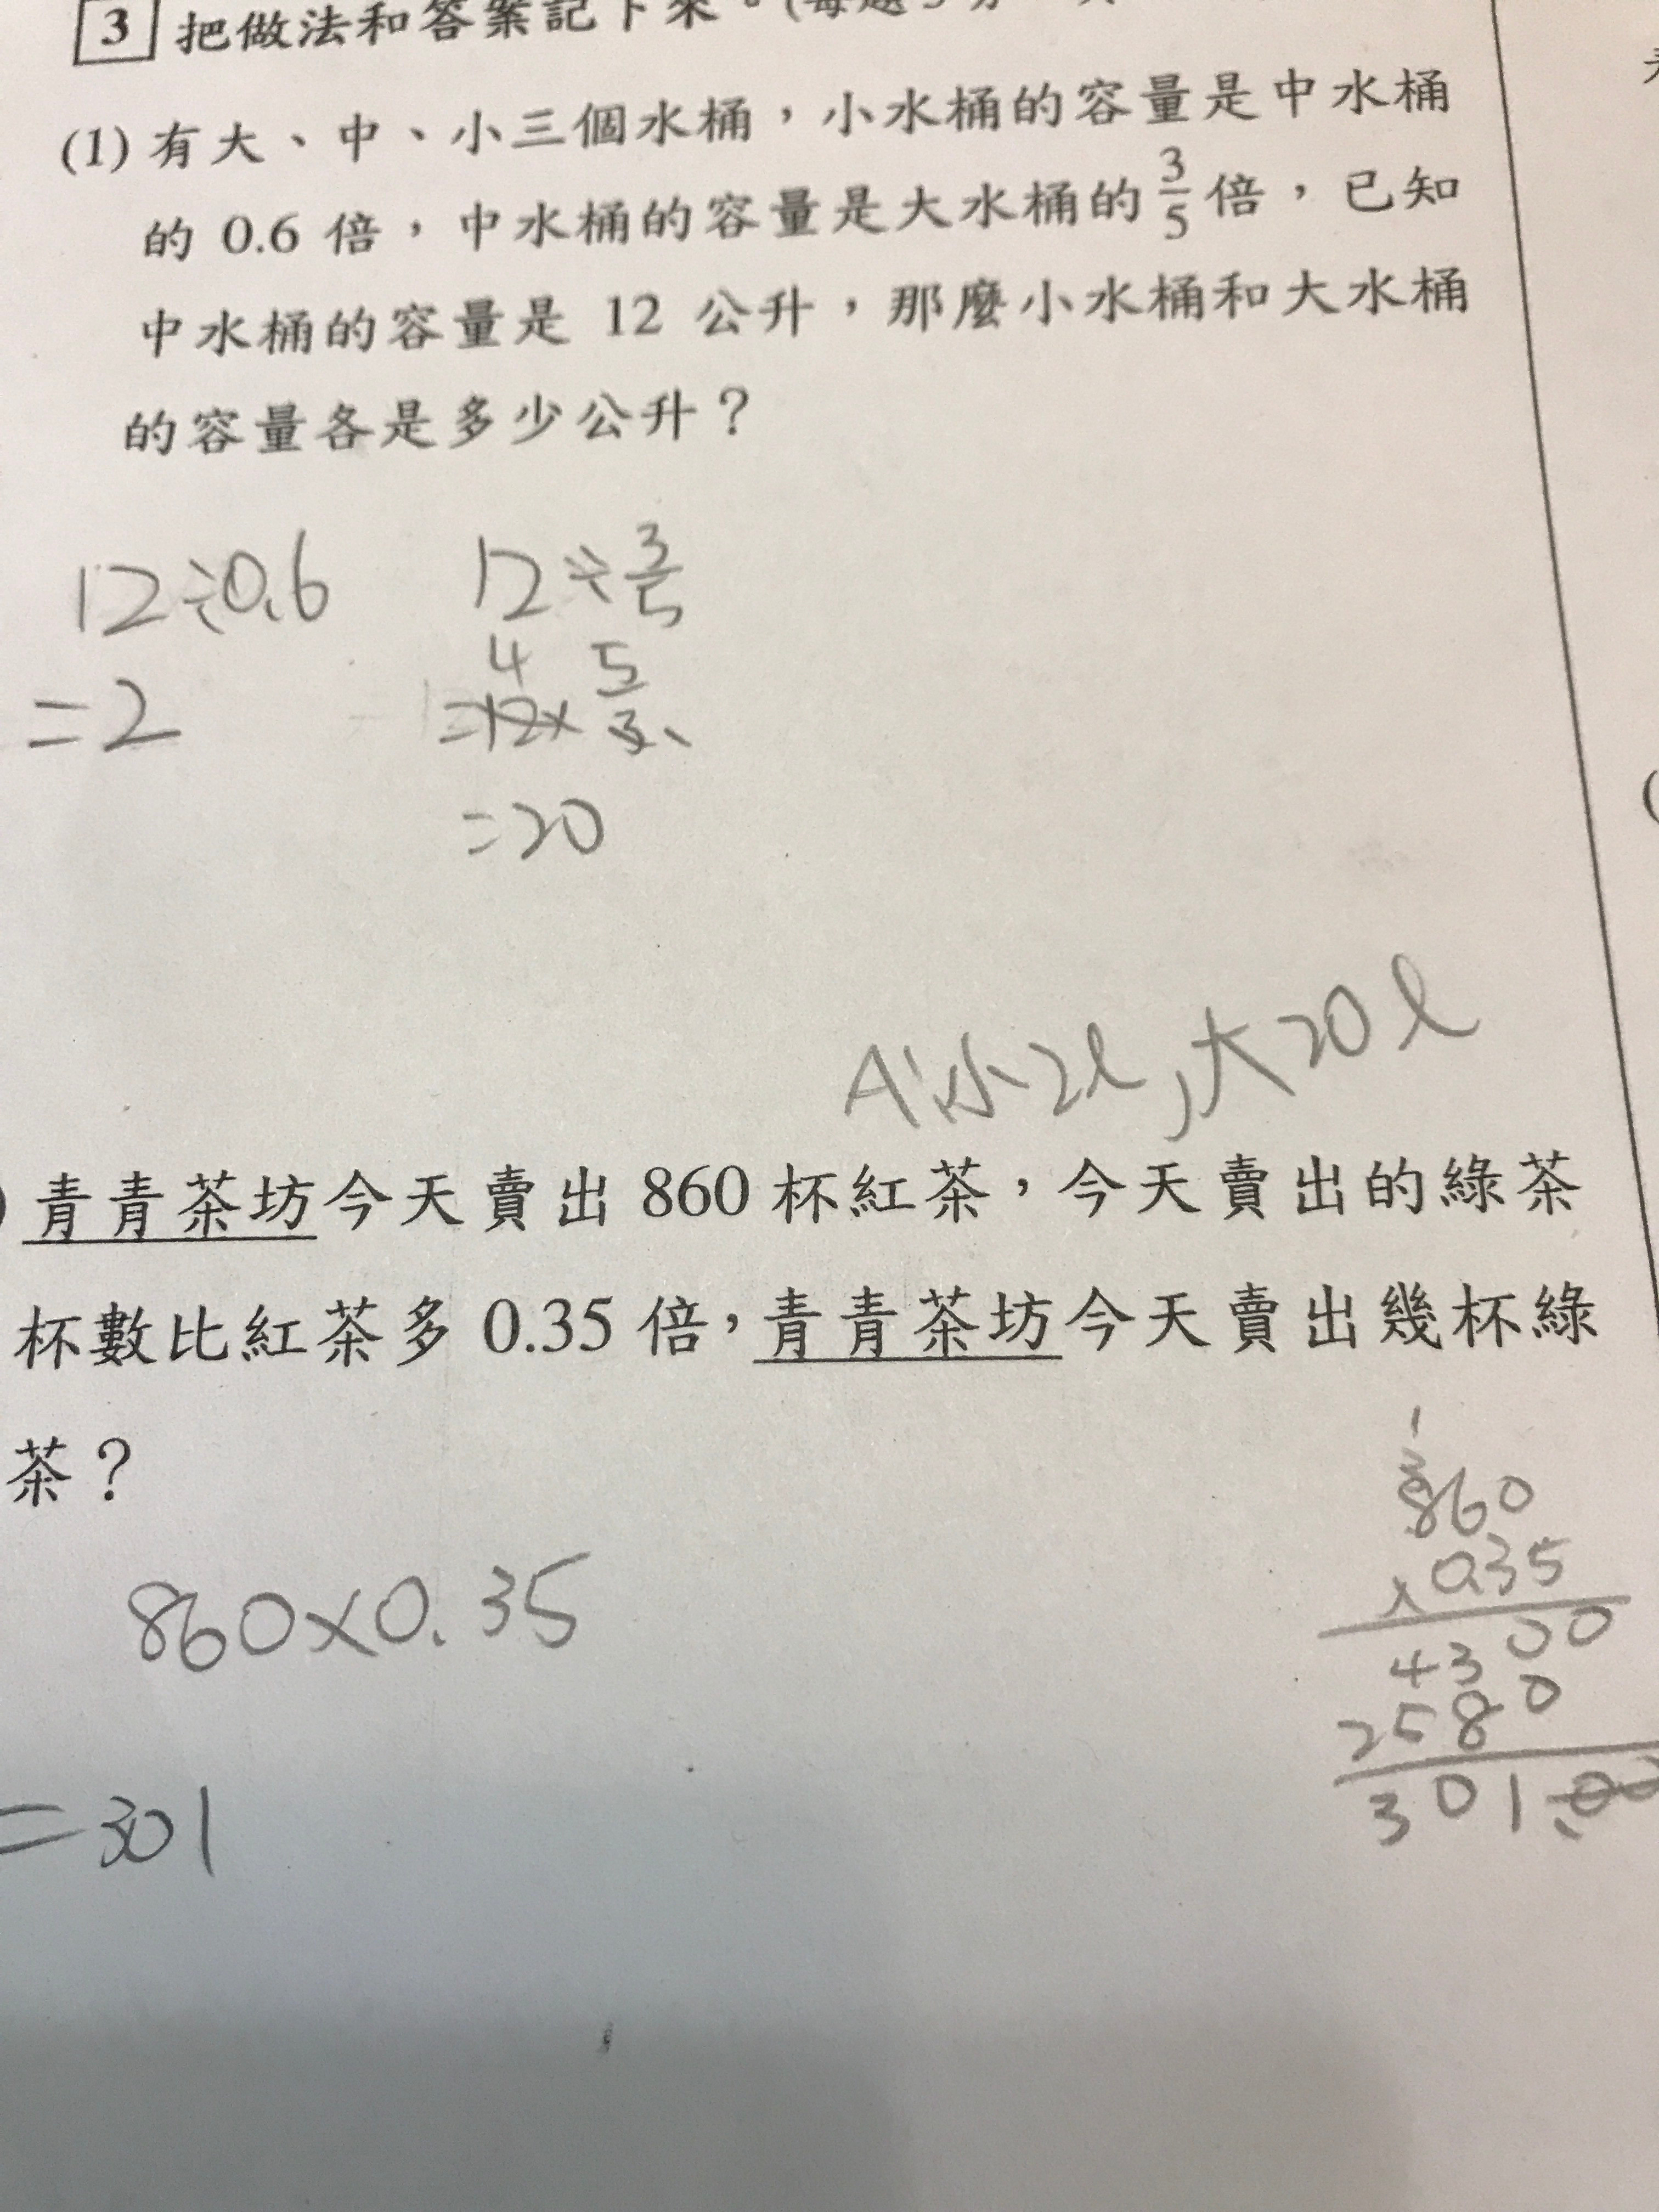 3 把做法和答案記下來。(每題5分
(1) 有大、中、小三個水桶，小水桶的容量是中水桶
的 0.6 倍，中水桶的容量是大水桶的 3/5 倍，已知
中水桶的容量是 12 公升，那麼小水桶和大水桶
的容量各是多少公升？
12÷0.6
=2
12÷3/5
4
=12×5/3
=20
A:小2l,大20l
) 青青茶坊今天賣出 860 杯紅茶，今天賣出的綠茶
杯數比紅茶多 0.35 倍，青青茶坊今天賣出幾杯綠
茶？
860×0.35
=301
1
3
860
×0.35
4300
2580
301.00